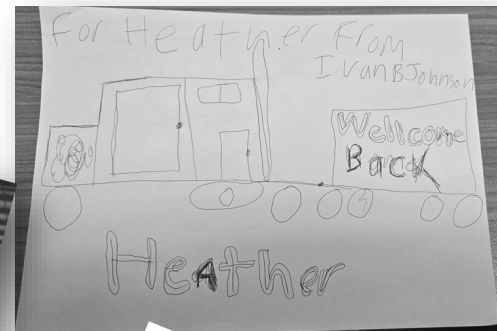 For Heather From
IvanBJohnson
Wellcome
Back
Heather